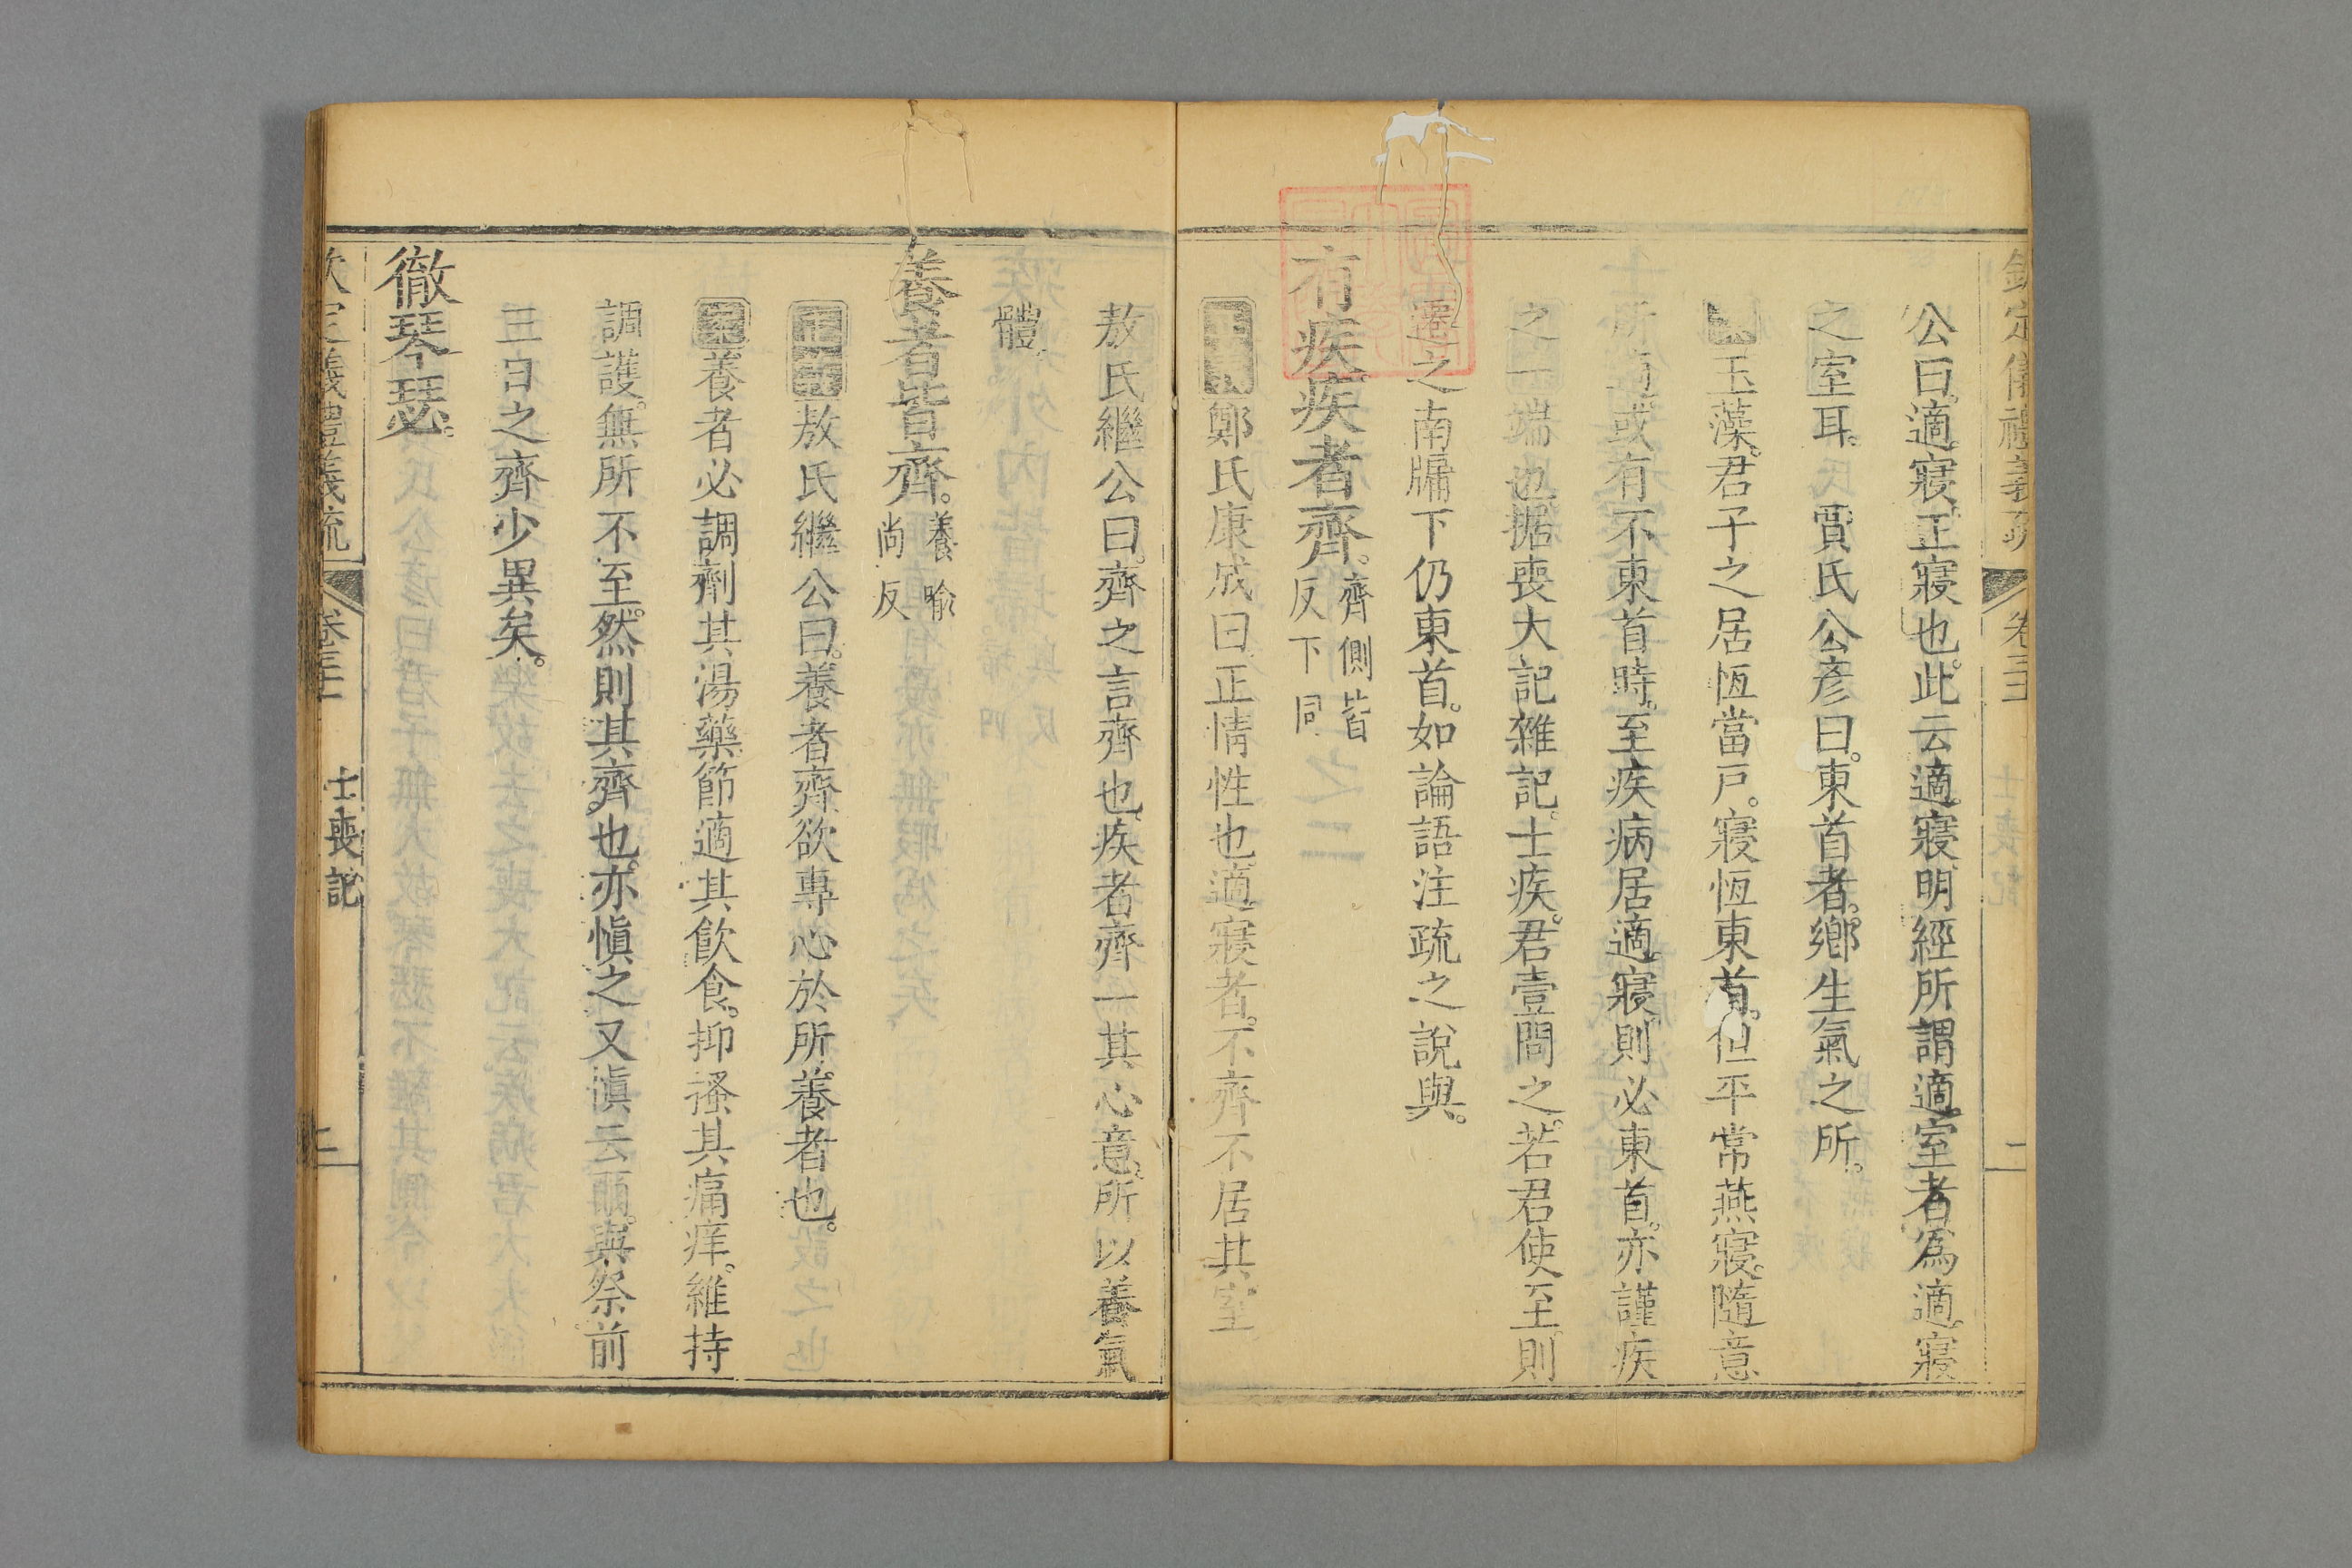 欽定儀禮義疏 卷三 士喪記 二
公曰適寢正寢也此云適寢明經所謂適室者爲適寢
之室耳。 賈氏公彥曰東首者鄉生氣之所。
玉藻君子之居恆當戸。寢恆東首。但平常燕寢隨意
所適或有不東首時。至疾病居適寢則必東首。亦謹疾
之一端也據喪大記雜記。士疾。君壹問之。若君使至則
遷之南牖下仍東首。如論語注疏之說與。
有疾疾者齊。齊側皆
反下同
鄭氏康成曰正情性也適寢者。不齊不居其室
敖氏繼公曰。齊之言齊也。疾者齊一其心意。所以養氣
體。
養者皆齊。養喩
尚反
正義敖氏繼公曰。養者齊欲專心於所養者也。
養者必調劑其湯藥節適其飮食。抑搔其痛痒。維持
調護。無所不至。然則其齊也。亦愼之又愼云爾。與祭前
三日之齊少異矣。
徹琴瑟。
欽定儀禮義疏 卷三 士喪記